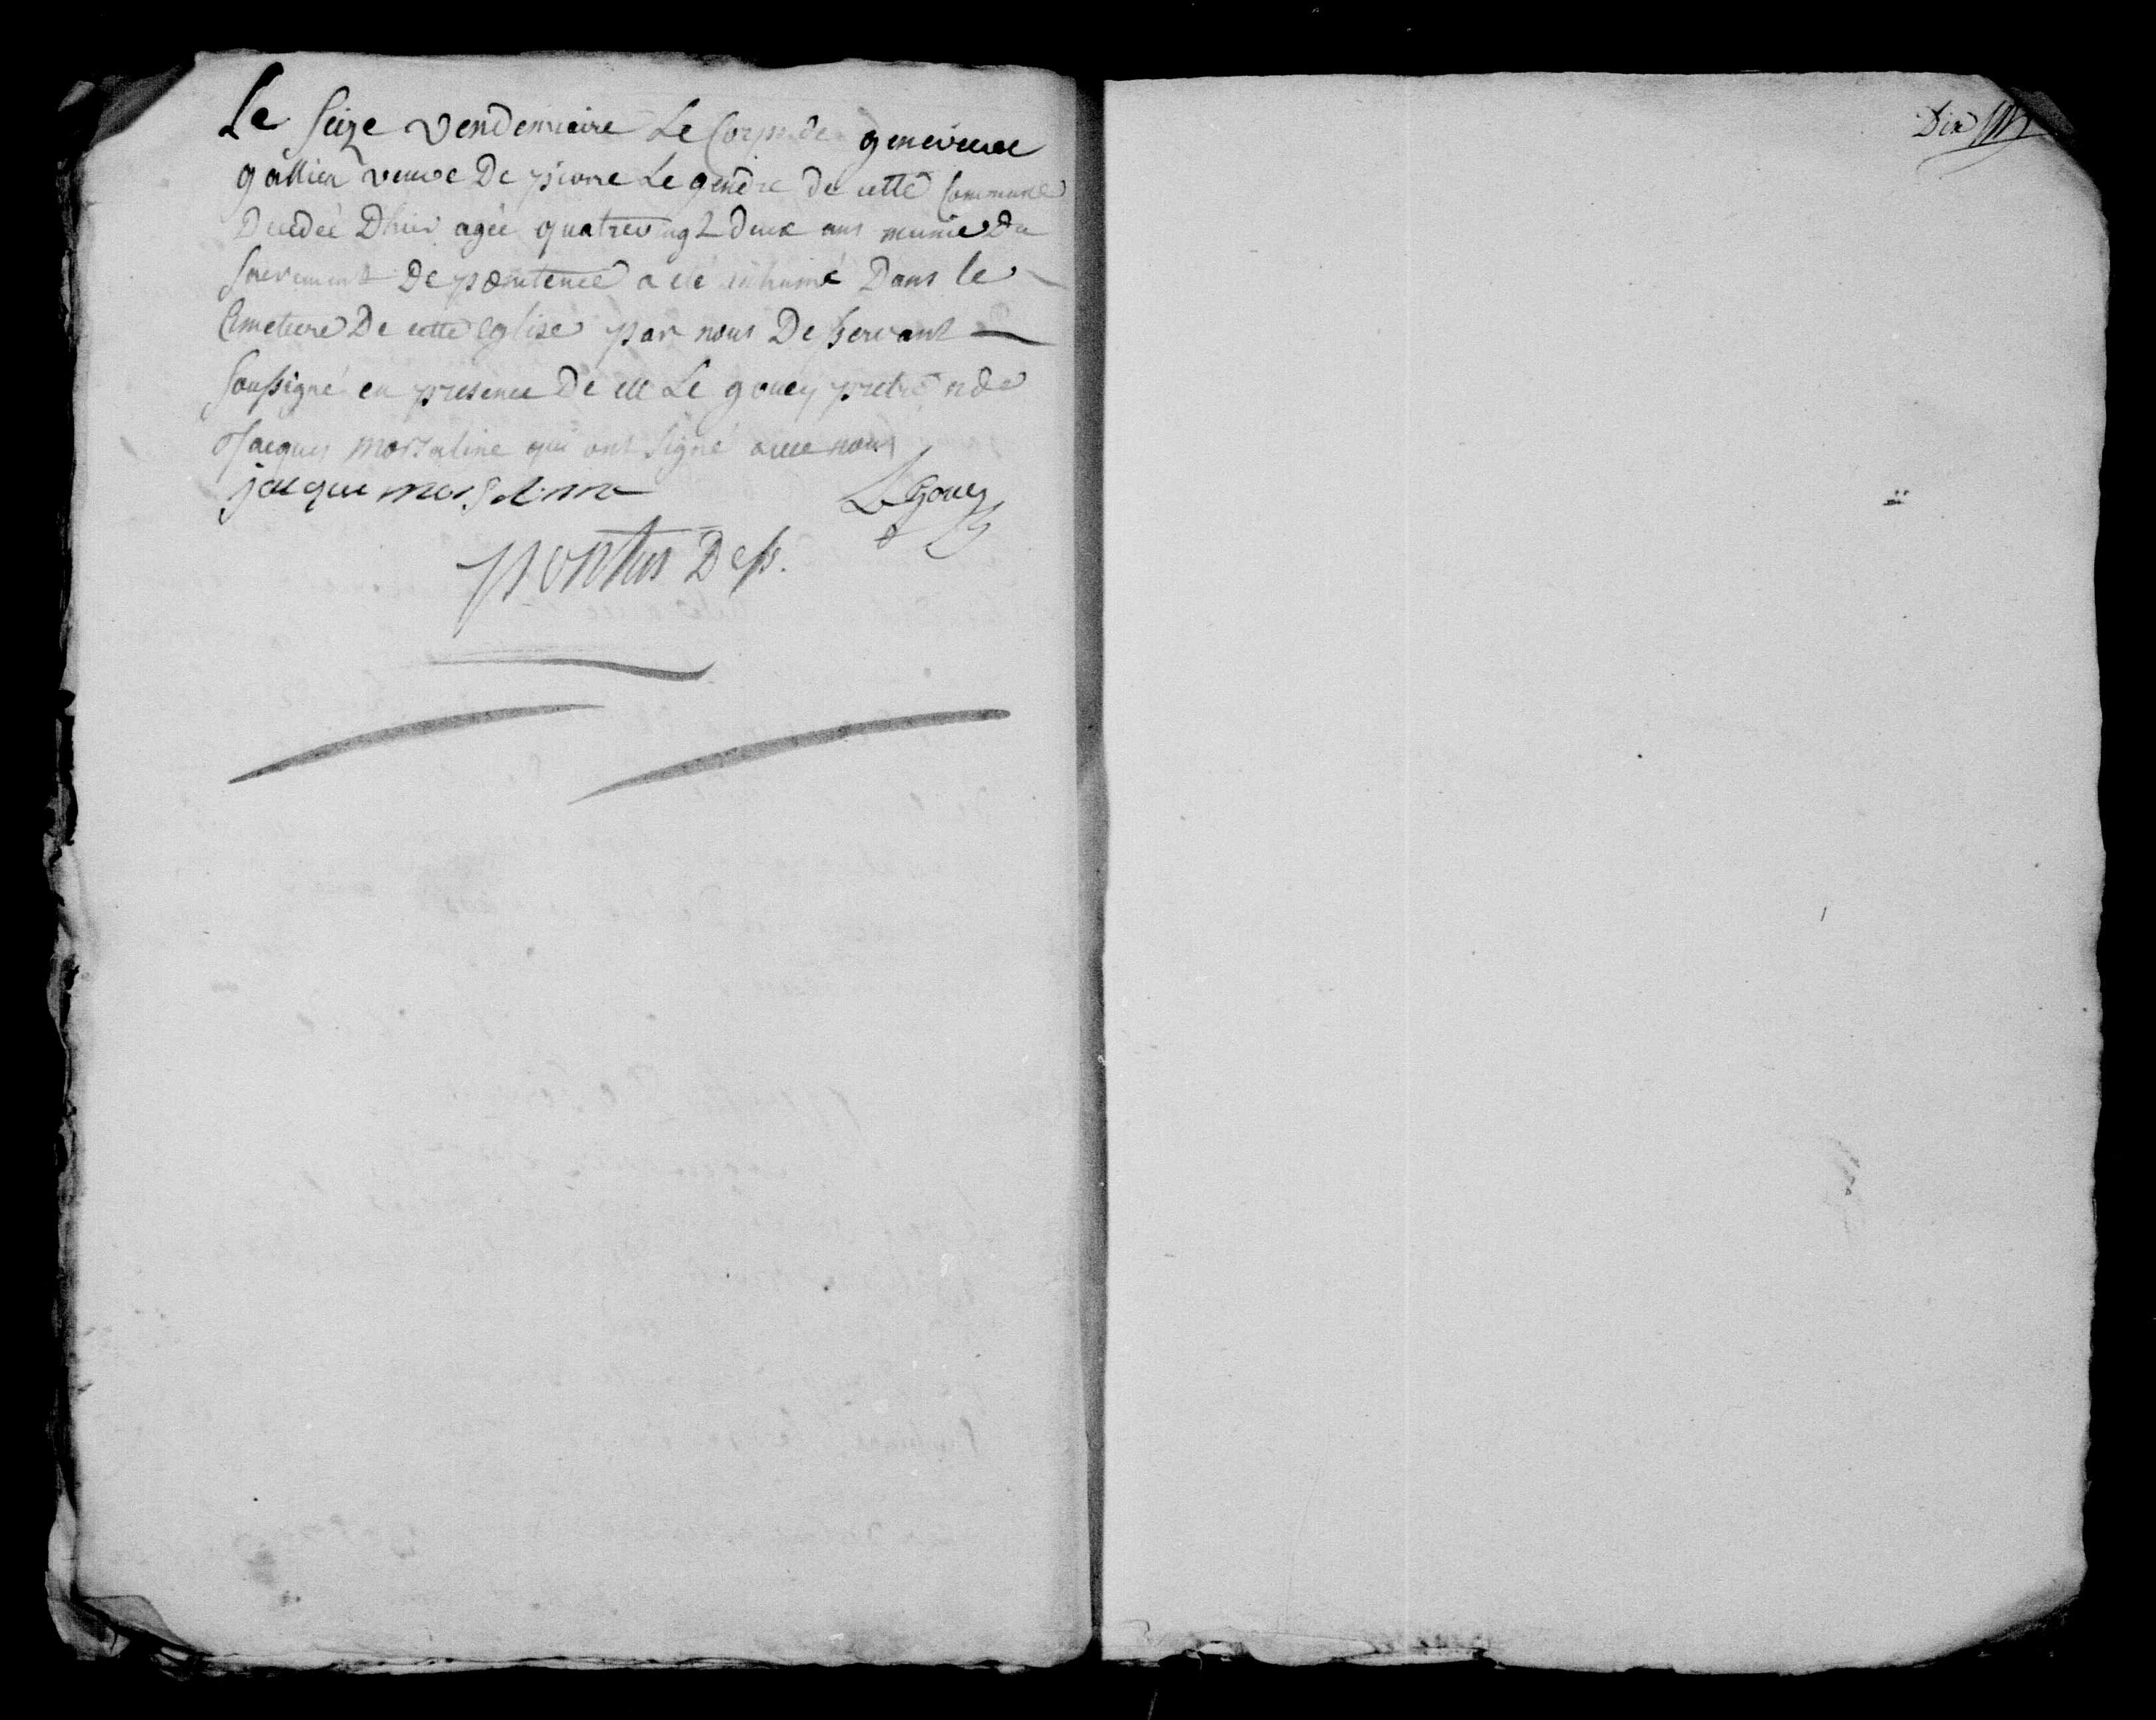 Le Seize vendemiaire Le Corps de genevieve
gallier veuve De pierre Le gendre de cette Commune
Decedée D'hier agée quatrevingt deux ans munie Du
Sacrement De penitence a été inhumé Dans le
Cimetiere De cette eglise par nous Desservant
Soussigné en presence De M Le gouey pretre
Jacques Marsaline qui ont signé avec nous
jacque marsaline Legouey
pontus Dess.
Dix